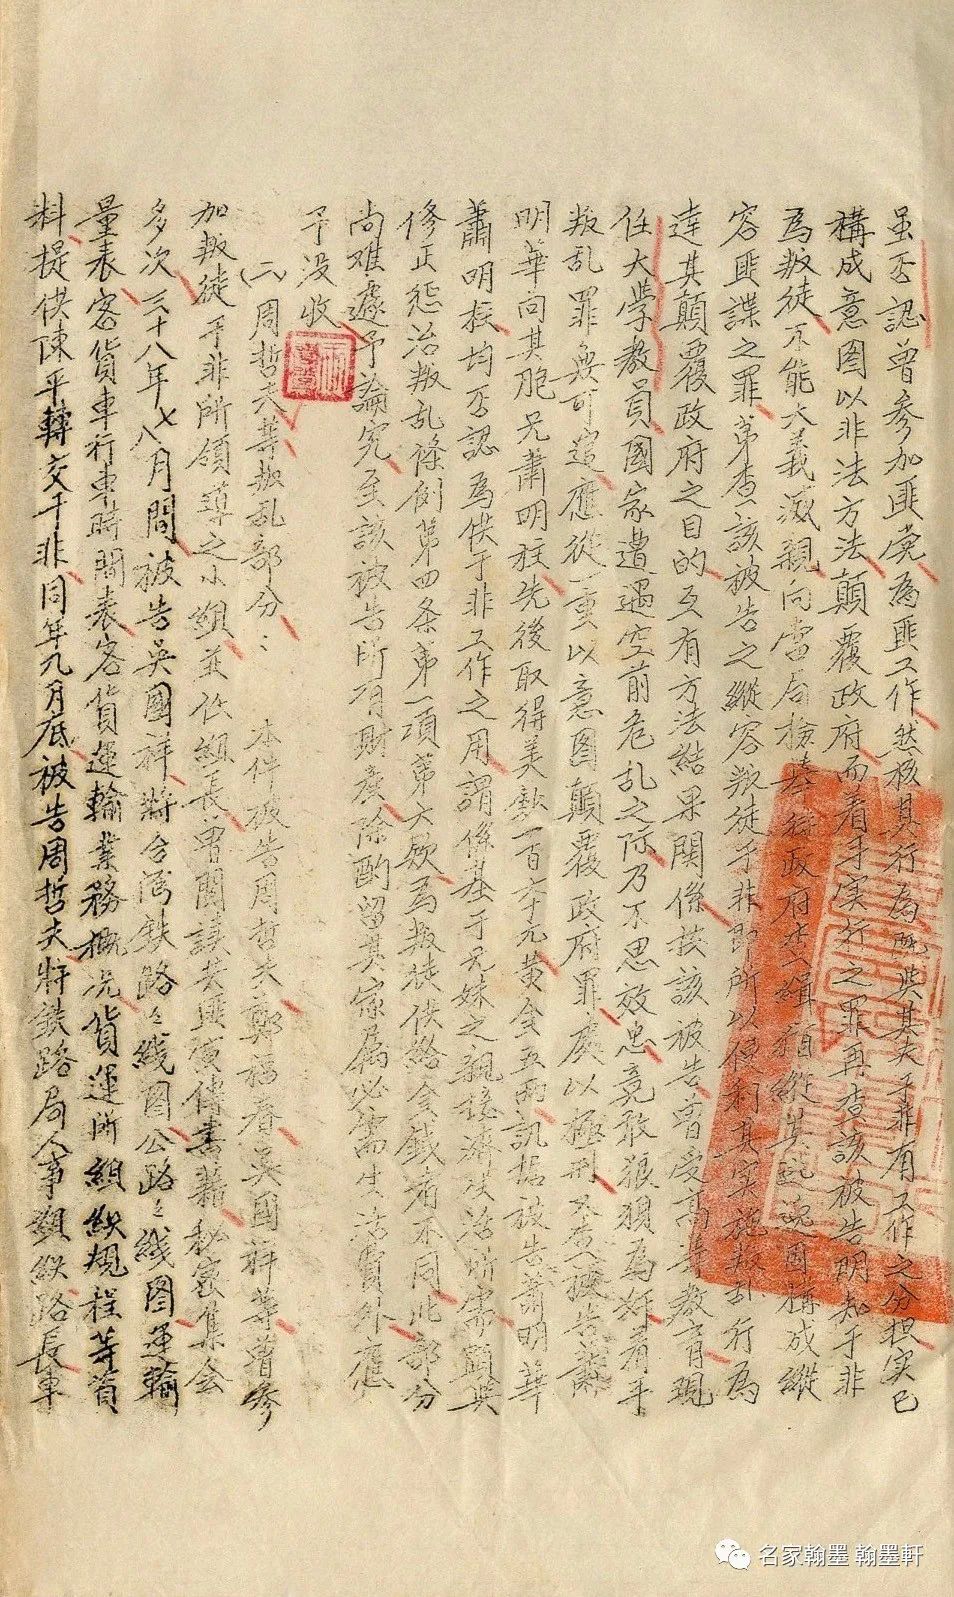 虽否認曾參加匪党為匪工作然核其行為既與其夫于非有工作之分担实已
構成意图以非法方法顛覆政府而着手实行之罪再查該被告明知于非
為叛徒不能大義滅親向當局檢舉
容匪諜之罪第查該被告之縱容叛徒于非即所以便利其实施叛乱行為
達其顛覆政府之目的互有方法結果関係核該被告曾受高等教育現
任大學教員國家遭遇空前危乱之际乃不思效忠竟敢狼狽為奸着手
叛乱罪無可逭應從一重以意图顛覆政府罪處以極刑又查被告蕭
明華向其胞兄蕭明柱先後取得美鈔一百六十元黄金五兩訊据被告蕭明華
蕭明柱均否認為供于非工作之用謂係基于兄妹之親接濟生活所需顯與
修正惩治叛乱條例第四条第一項第六欵為叛徒供給金錢者不同此部分
尚难遽予論究至該被告所有財產除酌留其家属必需生活費外應
予没收
(二)周哲夫等叛乱部分： 本件被告周哲夫鄭福春吳國祥等曾參
加叛徒于非所領導之小組並任組長曾閱讀共匪宣傳書籍秘密集会
多次三十八年七八月間被告吳國祥將台灣鉄路之线图公路之线图運輸
量表客貨車行車時間表客貨運輸業務概况貨運所組織規程等資
料提供陳平轉交于非同年九月底被告周哲夫將鉄路局人事組織路長車
名家翰墨 翰墨軒